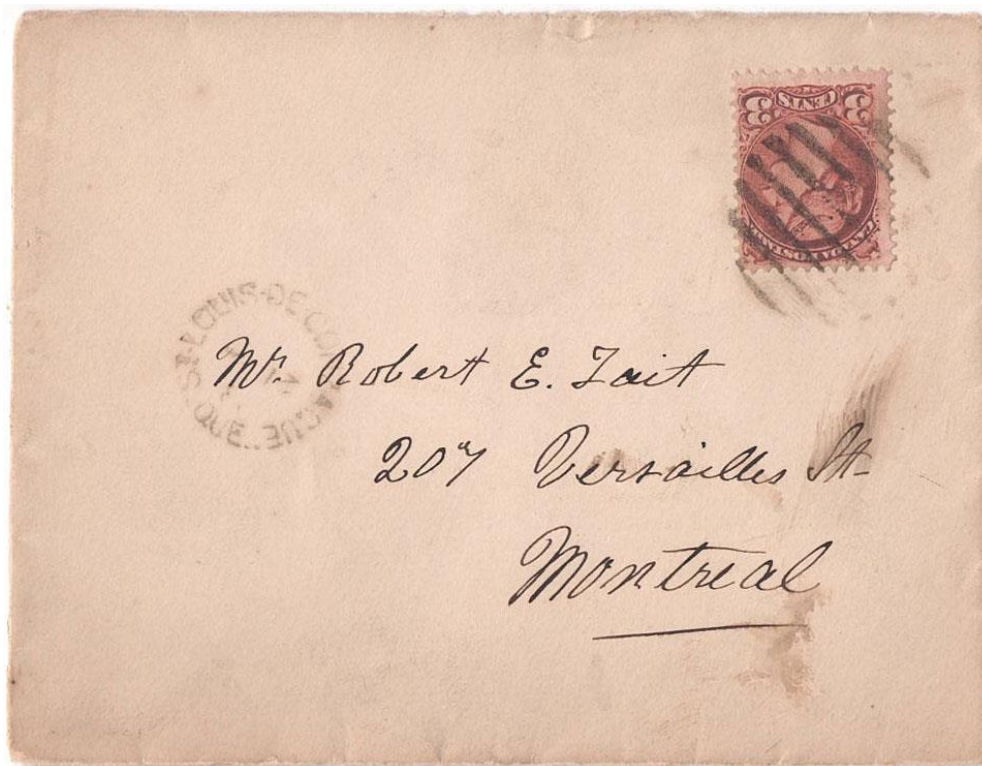 3 CENTS 3
ST. LOUIS-DE-GON AGUE
QUE.
Mr. Robert E. Tait
207 Versailles St-
Montreal